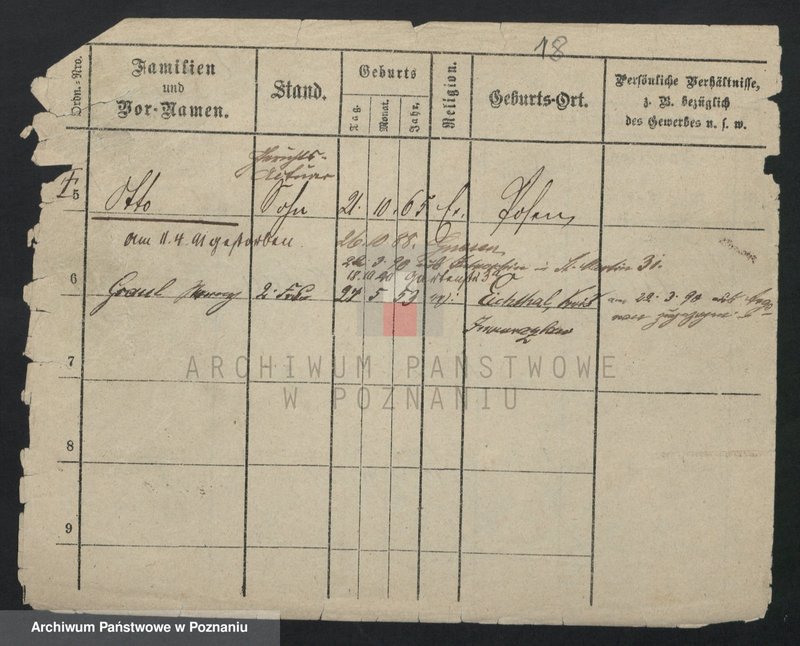 18
Ordn.-Nro.
Familien
und
Vor-Namen.
Stand.
Geburts
Tag.
Monat.
Jahr.
Religion.
Geburts-Ort.
Persönliche Verhältnisse,
z. B. bezüglich
des Gewerbes u. s. w.
Gerichts-
Actuar
5
Otto
Sohn
21. 10. 65
Ev.
Posen
am 11. 4. 91 gestorben.
26. 10. 88.
22. 3. 90
St. Martin 31.
6
2. Frau
27 5 53
Eichthal, Kreis
am 22. 3. 90
Inowrazlaw
7
ARCHIWUM PAŃSTWOWE
W POZNANIU
8
9
Archiwum Państwowe w Poznaniu